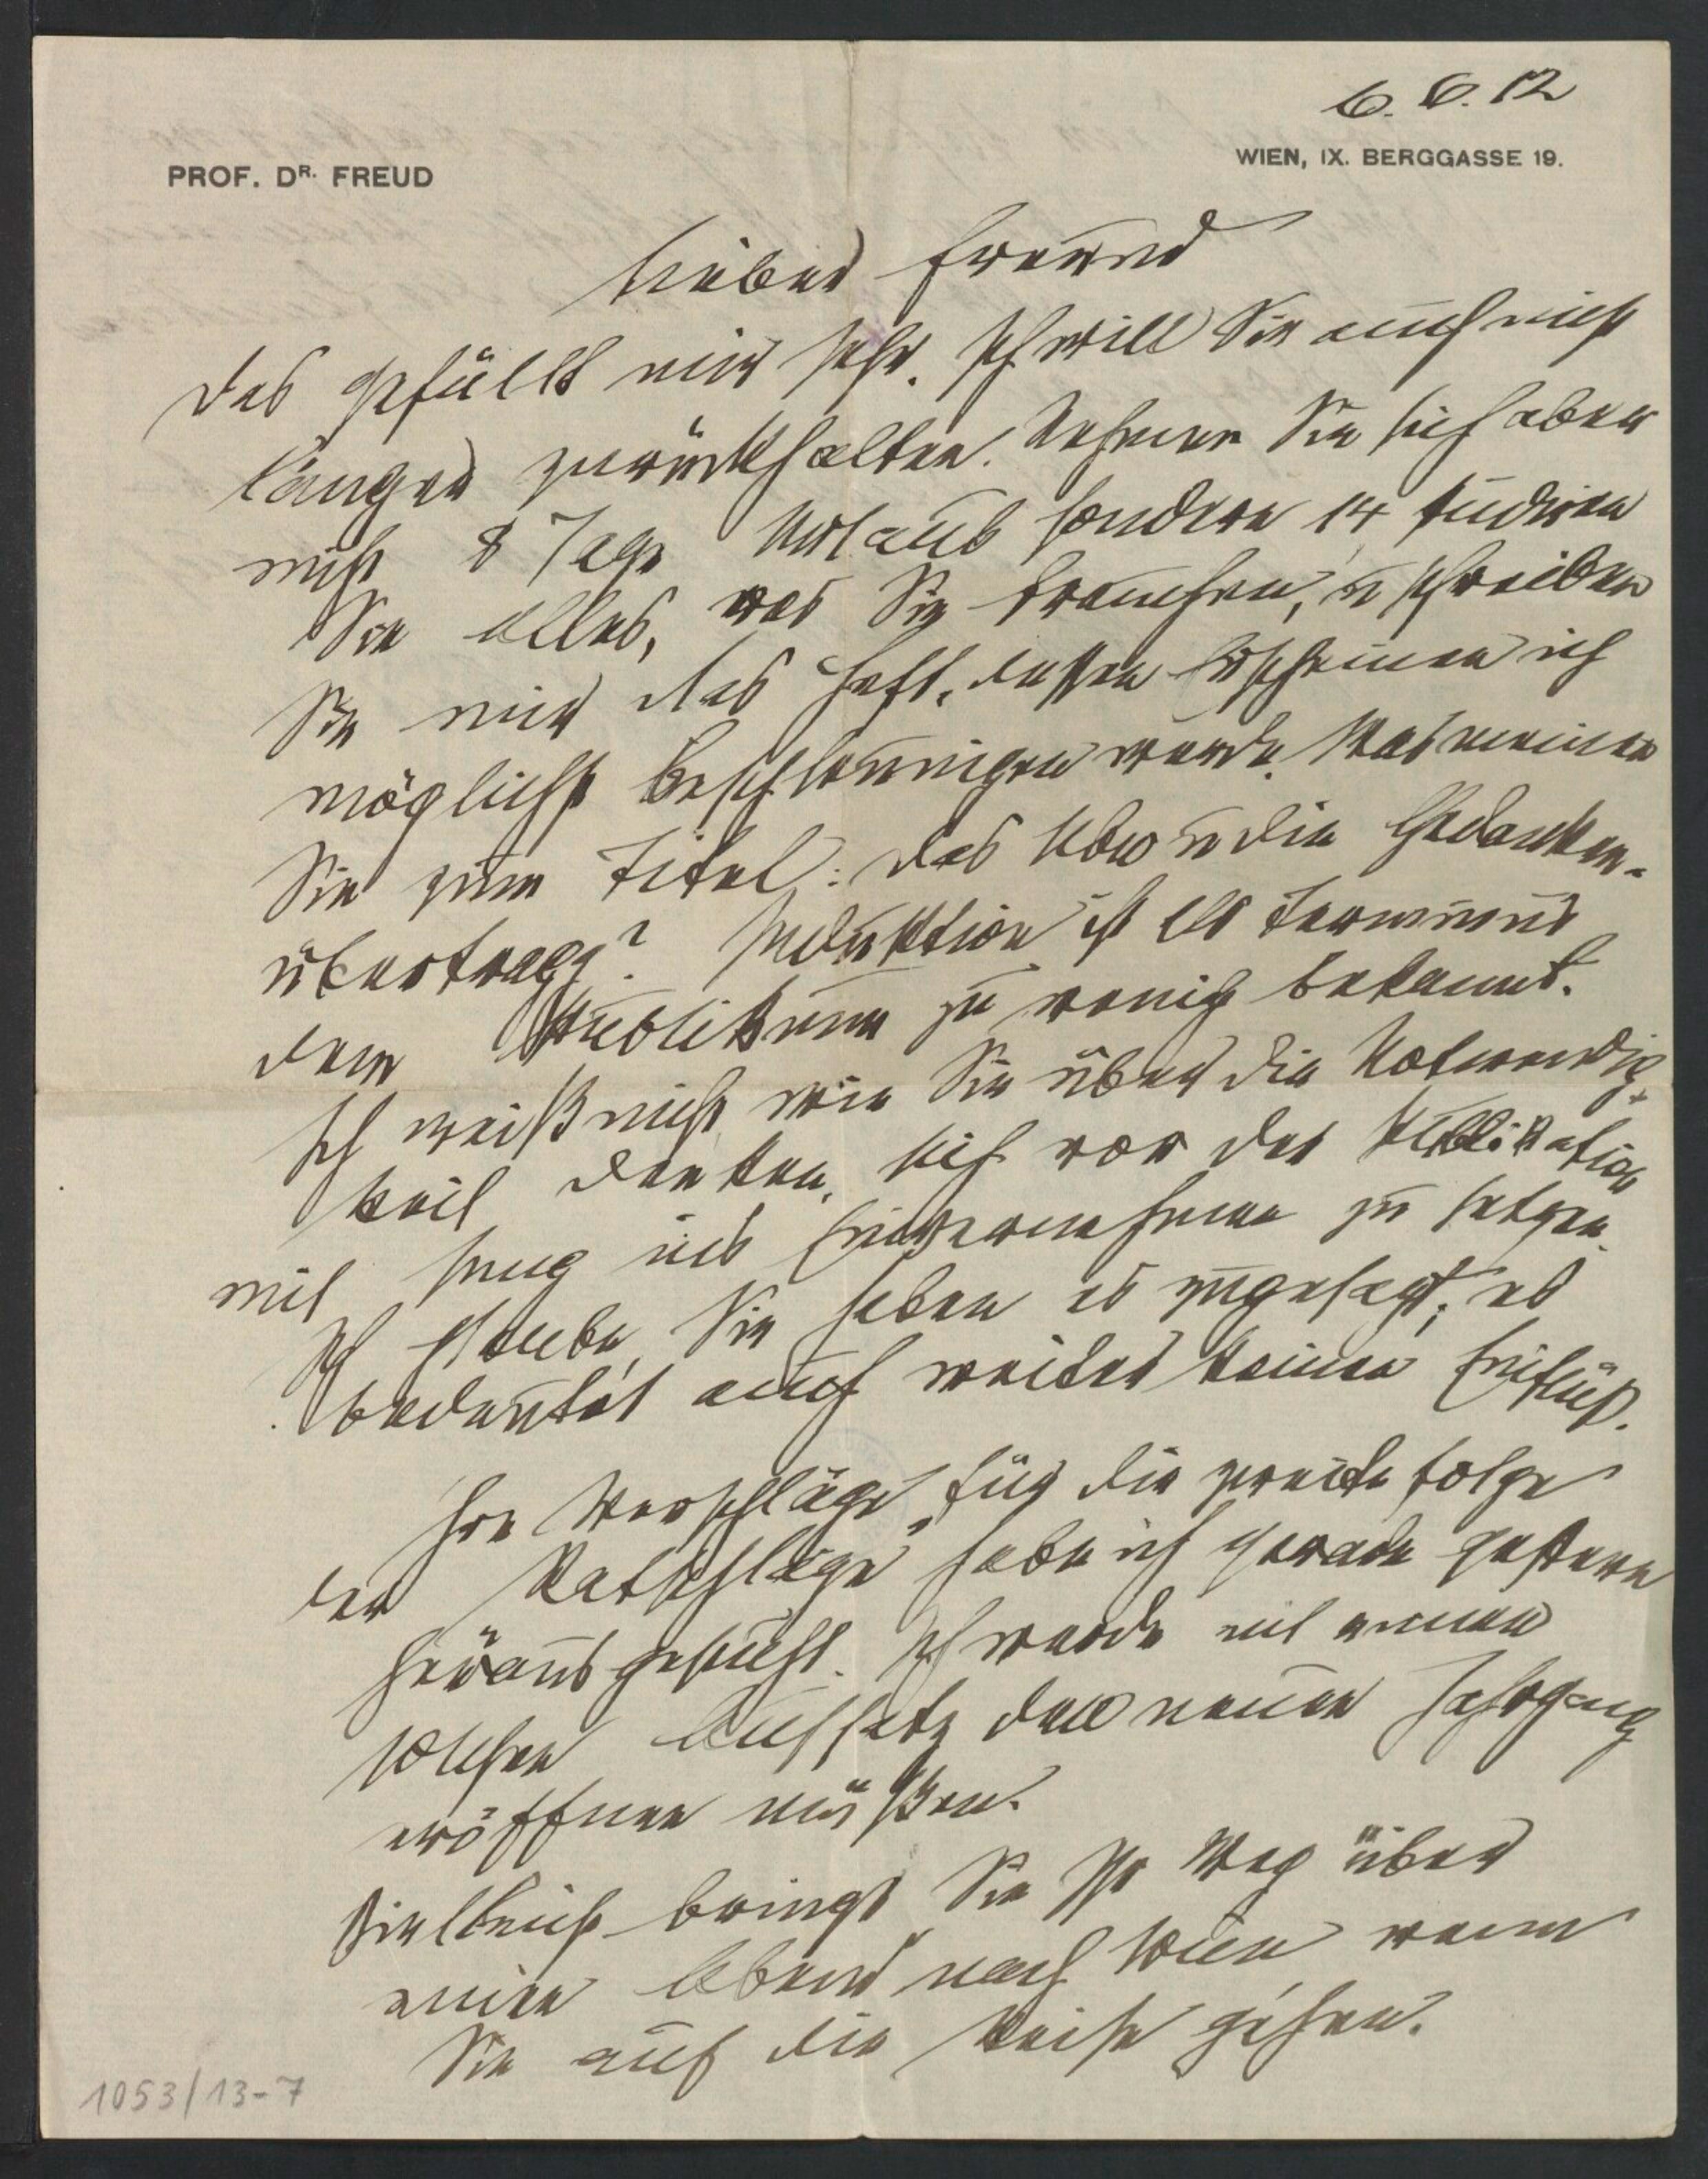 6. 6. 12
PROF. DR. FREUD
WIEN, IX. BERGGASSE 19.
Lieber Freund
Das gefällt mir sehr. Ich will Sie auch nicht
länger zurückhalten. Nehmen Sie sich aber
nicht 8 Tage Urlaub sondern 14, studiren
Sie Alles, was Sie brauchen, u schreiben
Sie mir das Heft, dessen Erscheinen ich
möglichst beschleunigen werde. Was meinen
Sie zum Titel: Das Ubw u die Gedanken-
übertragg? Induktion ist als Terminus
dem Publikum zu wenig bekannt.
Ich weiß nicht, wie Sie über die Notwendig-
keit denken, sich vor der Publikation
mit Jung ins Einvernehmen zu setzen.
Ich glaube, Sie haben es zugesagt; es
bedeutet auch weiter keinen Einfluß.
Ihre Vorschläge für die zweite Folge
der „Ratschläge" habe ich gerade gestern
herausgesucht. Ich werde mit einem
solchen Aufsatz den neuen Jahrgang
eröffnen müßen.
Vielleicht bringt Sie Ihr Weg über
einen Abend nach Wien wenn
Sie auf die Reise gehen.
1053/13-7